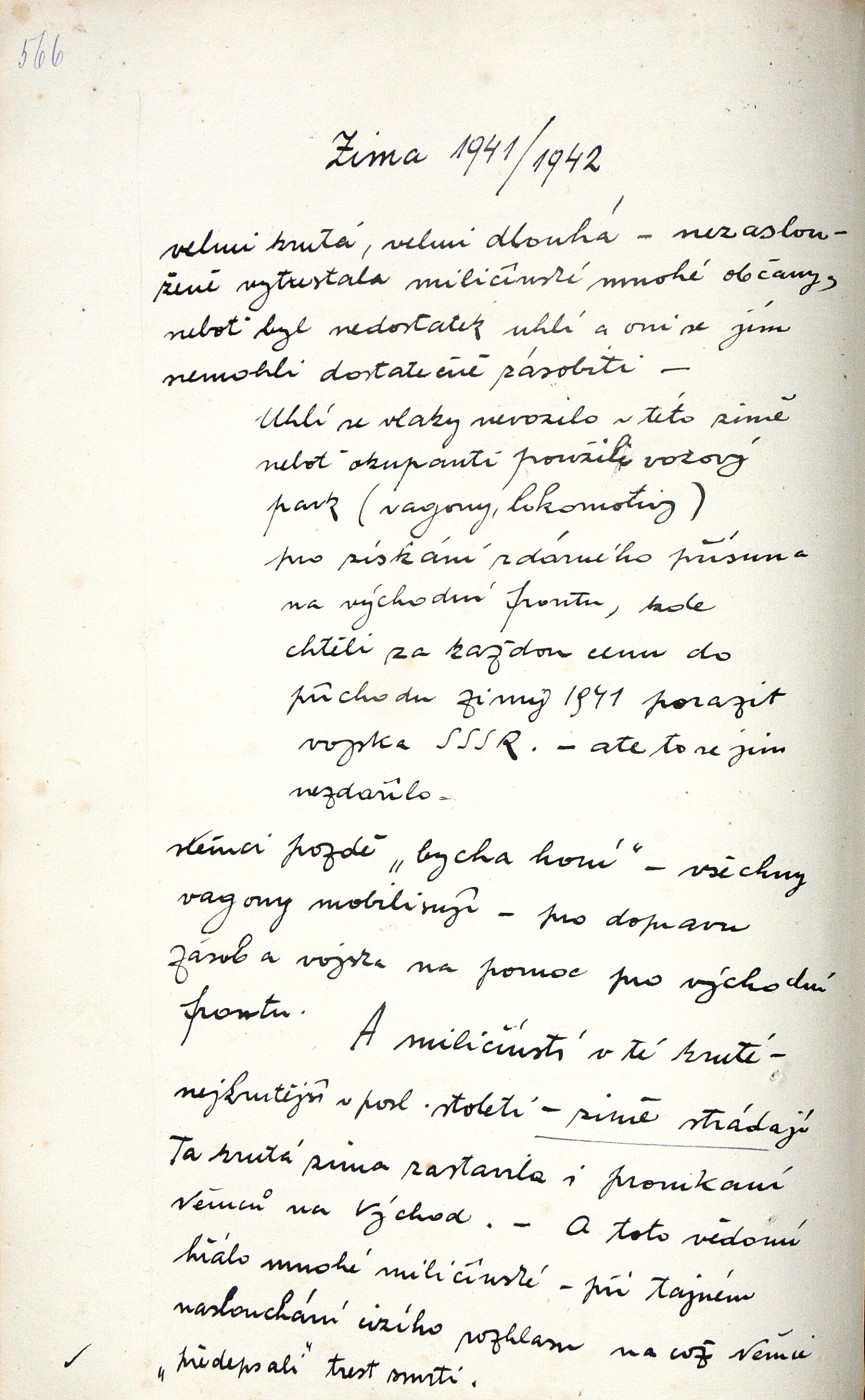 566
Zima 1941/1942
velmi krutá, velmi dlouhá – nezaslou-
ženě vytrestala miličínské mnohé občany,
neboť byl nedostatek uhlí a oni se jím
nemohli dostatečně zásobiti –
Uhlí se vlaky nevozilo v této zimě
neboť okupanti použili vozový
park (vagony, lokomotivy)
pro získání zdárného přísunu
na východní frontu, kde
chtěli za každou cenu do
příchodu zimy 1941 porazit
vojska SSSR. – ale to se jim
nezdařilo –
Němci pozdě „bycha honí“ – všechny
vagony mobilisují – pro dopravu
zásob a vojska na pomoc pro východní
frontu.
A miličínští v té kruté –
nejkrutější v posl. století – zimě strádají
Ta krutá zima zastavila i pronikání
Němců na Východ. – A toto vědomí
hřálo mnohé miličínské – při tajném
naslouchání cizího rozhlasu na což Němci
„předepsali“ trest smrti.